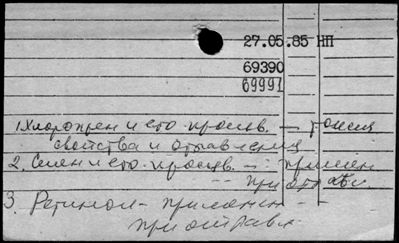 27.05.85 НП
69390
69991
1. Хлоропрен и его произв. — токсич
свойства и отравления
2. Селен и его произв. — примен
— при отравл.
3. Ретинол - примен -
при отравл